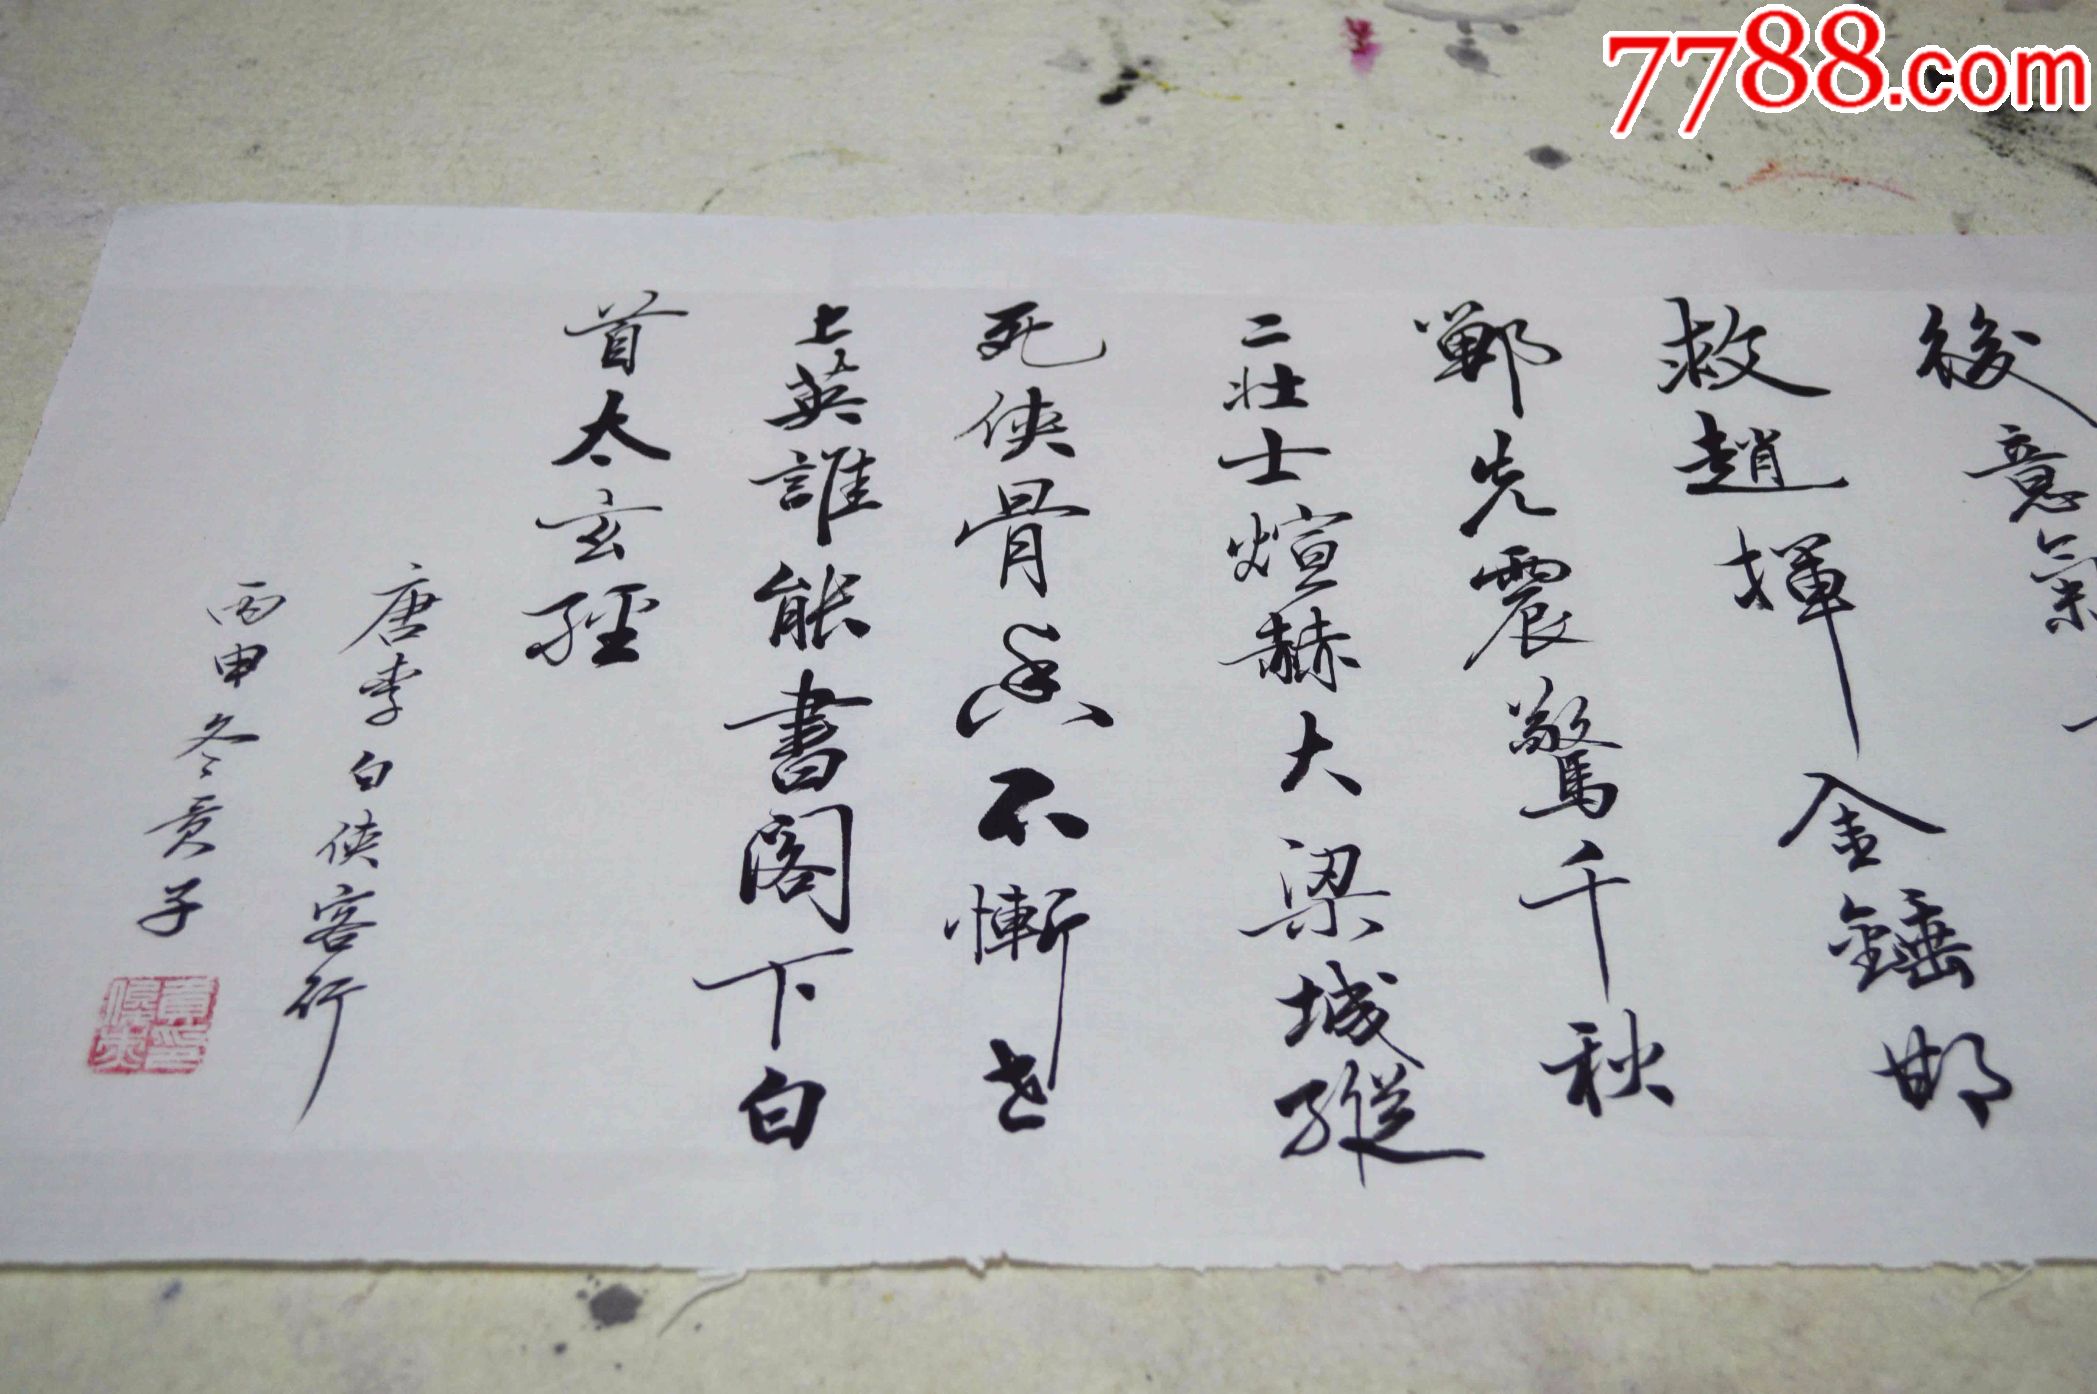 7788.com
後意氣
救趙揮金錘邯
鄲先震驚千秋
二壯士煊赫大梁城縱
死俠骨香不慚世
上英誰能書閣下白
首太玄經
唐李白俠客行
丙申冬